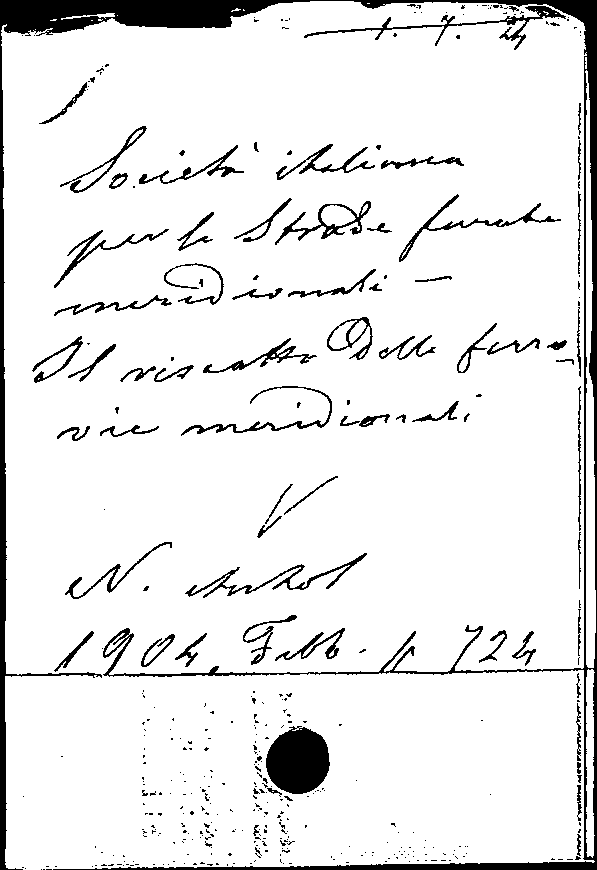 1. 7. 24
Società italiana
per le Strade ferrate
meridionali -
Il riscatto delle ferro-
vie meridionali
V
N. Antol
1904. Febb. p 724